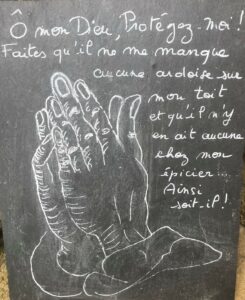 Ô mon Dieu, Protégez-moi!
Faites qu'il ne me manque
aucune ardoise sur
mon toit
et qu'il n'y
en ait aucune
chez mon
épicier...
Ainsi
soit-il!